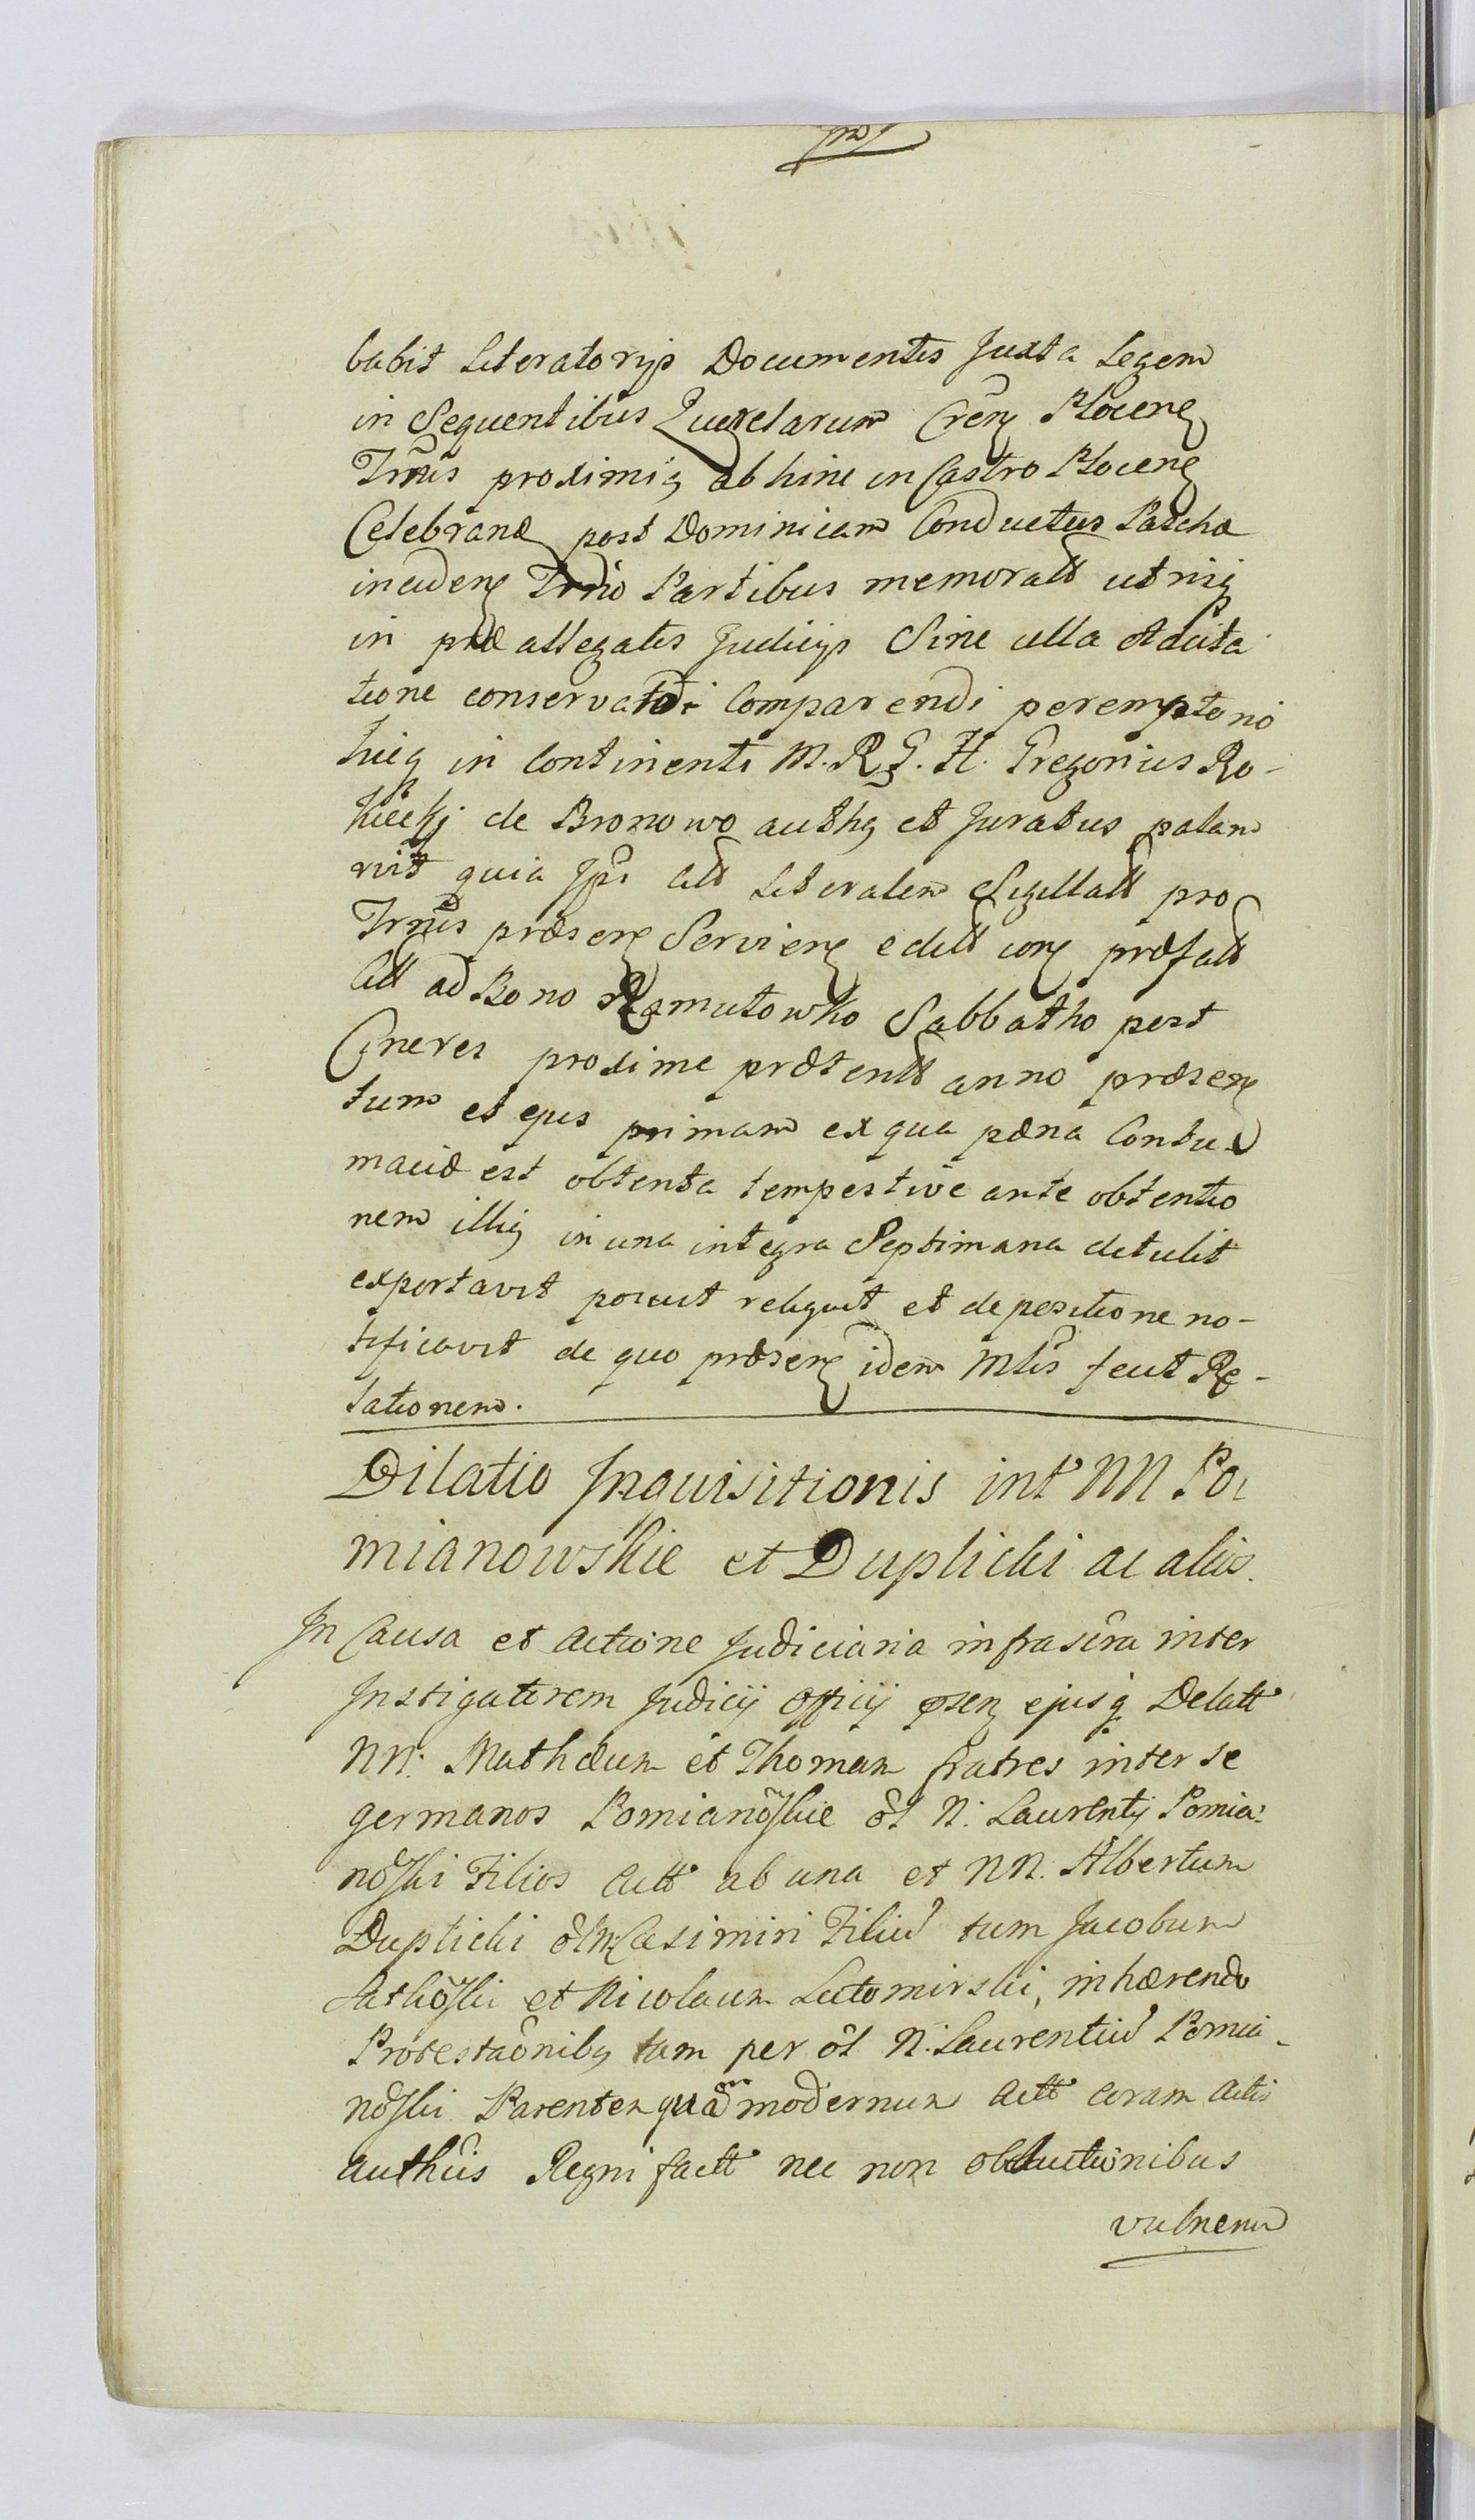 babit Literatorijs Documentis Juxta Legem
in Sequentibus Querelarum Cren Plocen
Trnis proximis abhinc in Castro Plocen
Celebrand post Dominicam Conductus Pascha
inciden Trno Partibus memoratt utriq
in præ allegatis Judicijs Sine ulla Adcita
tione conservatdi Comparendi peremptorio
huiq in Continenti M. R. G. H. Gregorius Ro-
kickj de Bronowo auths et Juratus palam
vit quia Jpse Citt Literalem Sigillatt pro
Trnis præsen Servien editt con præfatt
Citt ad Bono Ramutowko Sabbatho post
Cineres proxime præteritt anno præsen
tum et ejus primam ex qua pæna Contu
maciæ est obtenta tempestive ante obtentio
nem illiq in una integra Septimana detulit
exportavit posuit reliquit et depositione no-
tificavit de quo præsen idem Mtis fecit Re-
lationem.
Dilatio Inquisitionis int NN Po
mianowskie et Duplicki ac alios.
In Causa et actione Judiciaria infrascra inter
Instigatorem Judicij Officij psen ejusq Delatt
NN. Mathæum et Thomam fratres inter se
germanos Pomianoskie ol N. Laurentij Pomia:
noski Filios Actt ab una et NN. Albertum
Duplicki ol N Casimiri Filiu tum Jacobum
et Nicolaum Lutomirski, inhærendo
Protestaonibq tam per ol N. Laurentiu Pomia-
noski Parentem quam modernum Actt coram Actis
authcis Regni factt nec non obductionibus
vulnerum